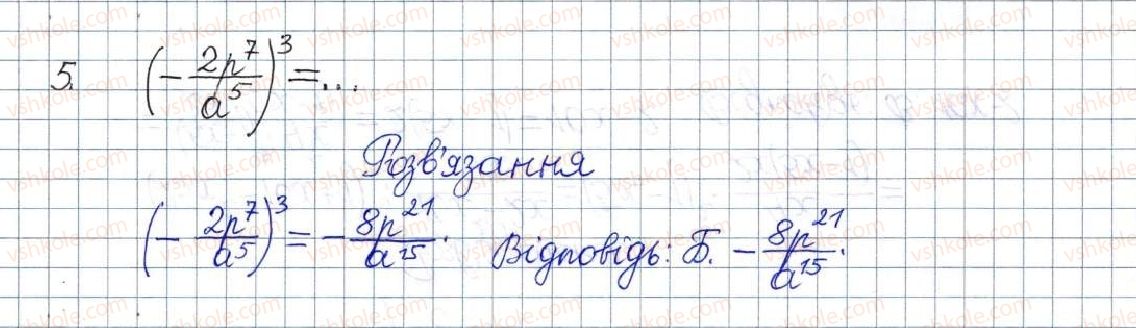 5. (-2p^7/a^5)^3 = ...
Розв'язання
(-2p^7/a^5)^3 = -8p^21/a^15. Відповідь: Б. -8p^21/a^15.